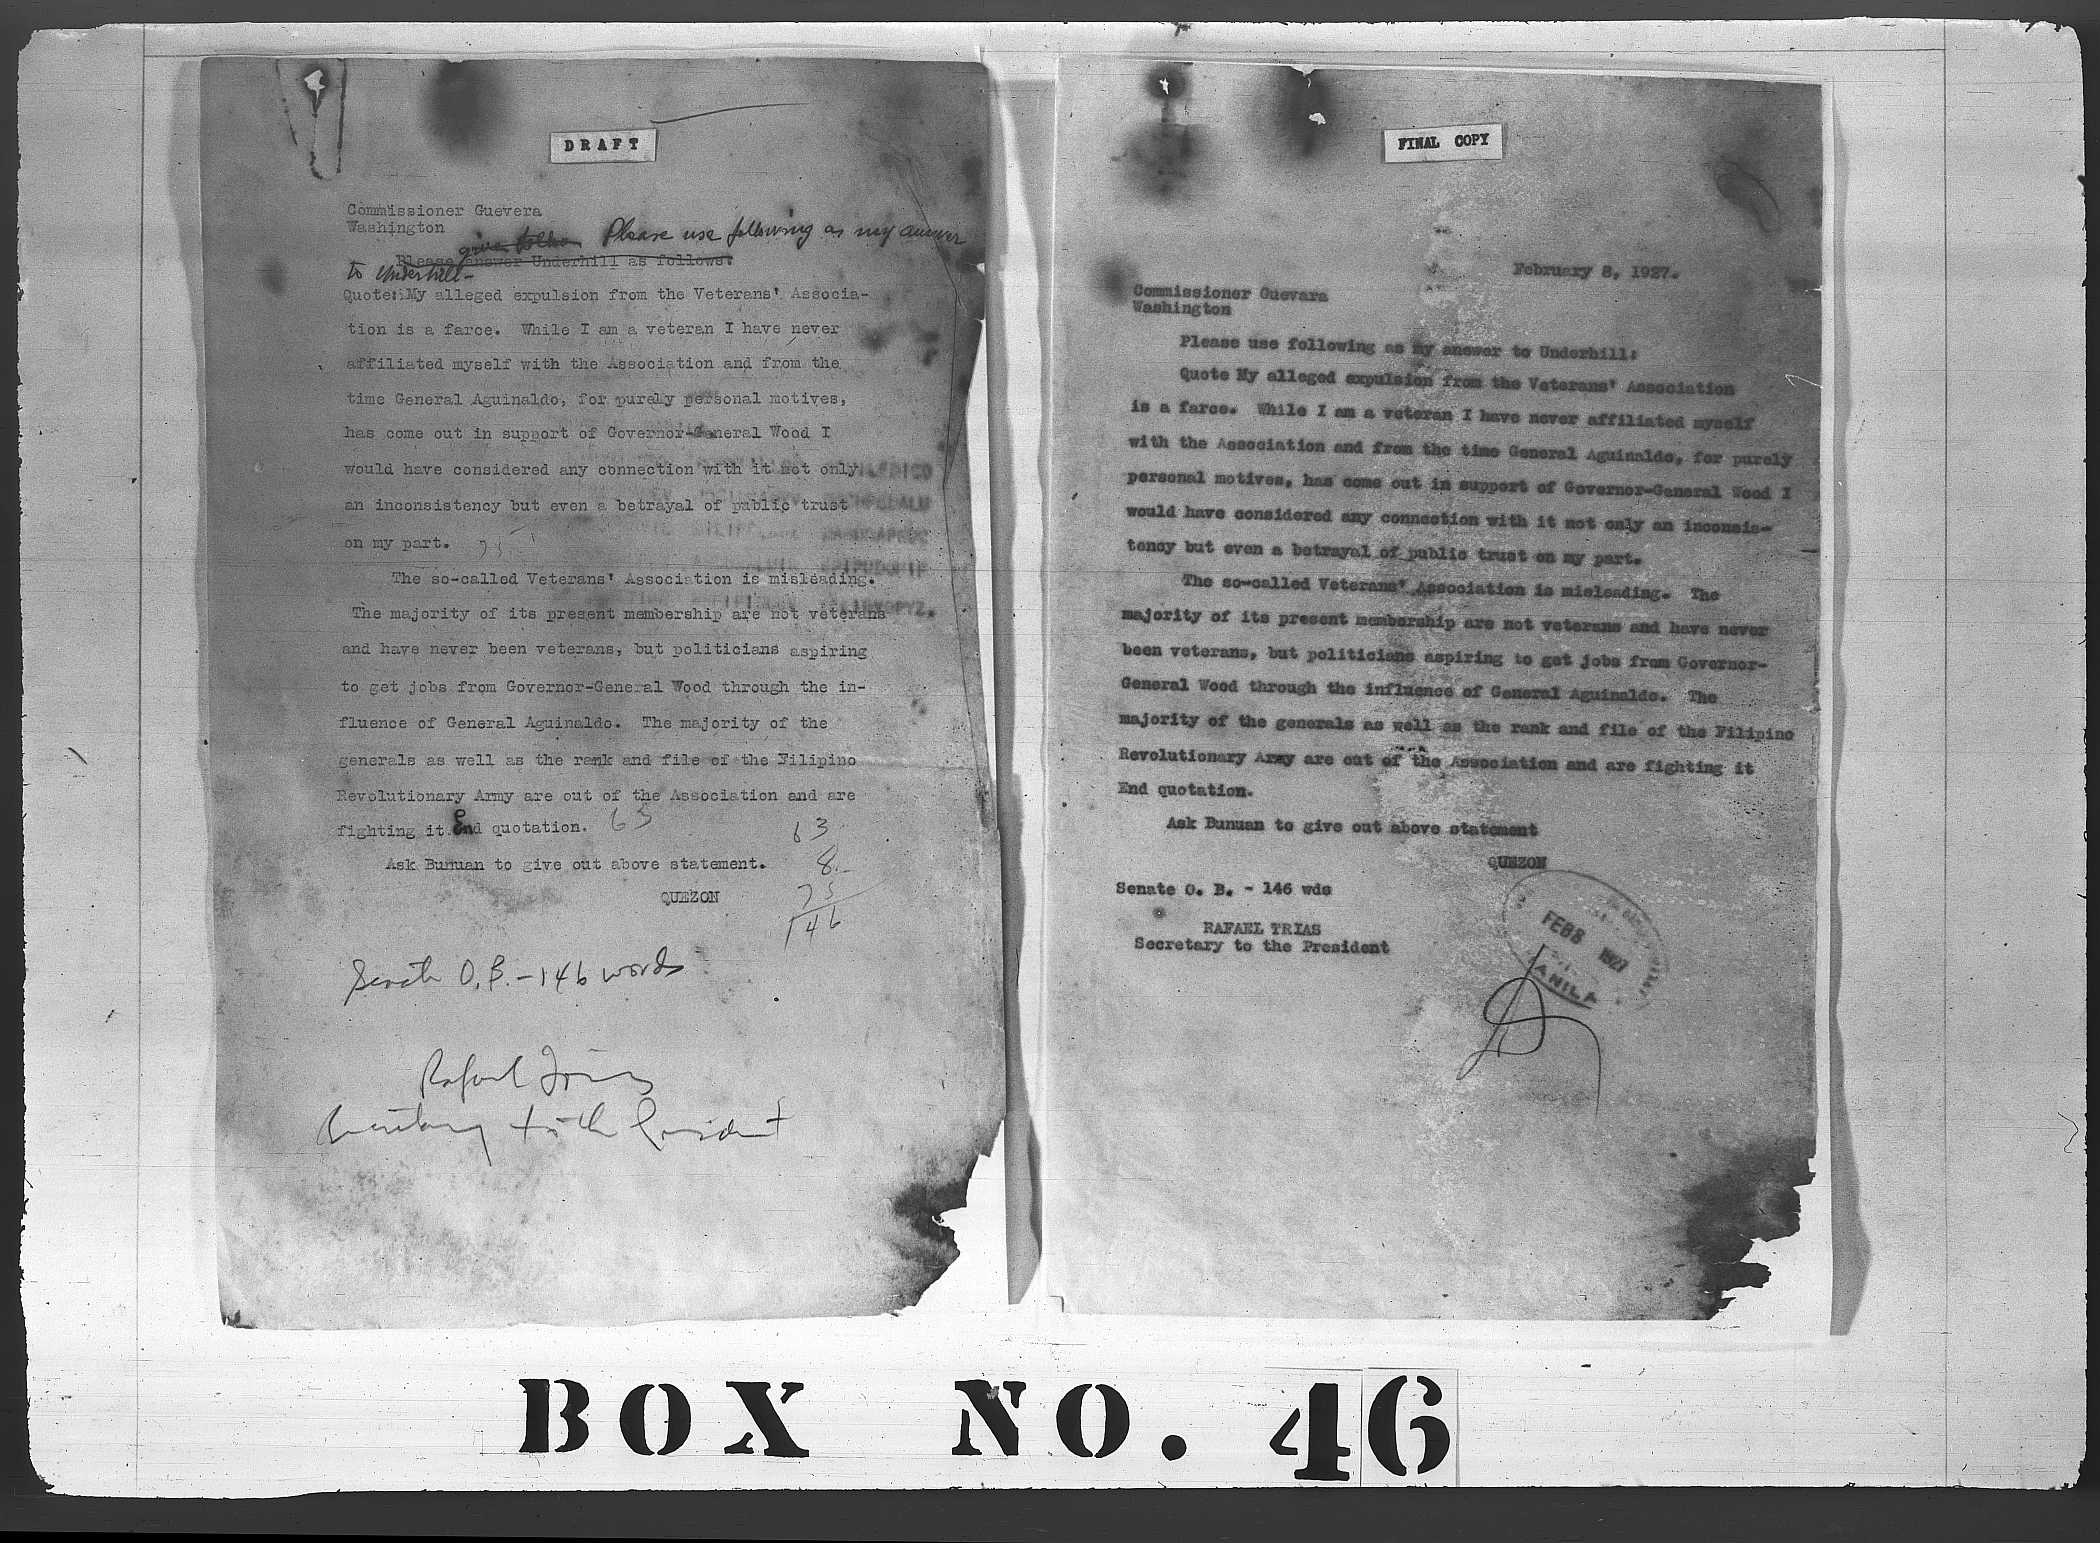 DRAFT
Commissioner Guevera
Washington
give follow Please use following as my answer
Please answer Underhill as follows:
to Underhill-
Quote: My alleged expulsion from the Veterans' Associa-
tion is a farce. While I am a veteran I have never
affiliated myself with the Association and from the
time General Aguinaldo, for purely personal motives,
has come out in support of Governor-General Wood I
would have considered any connection with it not only
an inconsistency but even a betrayal of public trust
on my part. 75
The so-called Veterans' Association is misleading.
The majority of its present membership are not veterans
and have never been veterans, but politicians aspiring
to get jobs from Governor-General Wood through the in-
fluence of General Aguinaldo. The majority of the
generals as well as the rank and file of the Filipino
Revolutionary Army are out of the Association and are
fighting it End quotation. 63
63
Ask Bunuan to give out above statement. 8
QUEZON 75
146
Senate O.B. - 146 words
Rafael Trias
Secretary to the President
FINAL COPY
February 8, 1927.
Commissioner Guevara
Washington
Please use following as my answer to Underhill:
Quote My alleged expulsion from the Veterans' Association
is a farce. While I am a veteran I have never affiliated myself
with the Association and from the time General Aguinaldo, for purely
personal motives, has come out in support of Governor-General Wood I
would have considered any connection with it not only an inconsis-
tency but even a betrayal of public trust on my part.
The so-called Veterans' Association is misleading. The
majority of its present membership are not veterans and have never
been veterans, but politicians aspiring to get jobs from Governor-
General Wood through the influence of General Aguinaldo. The
majority of the generals as well as the rank and file of the Filipino
Revolutionary Army are out of the Association and are fighting it
End quotation.
Ask Bunuan to give out above statement
QUEZON
Senate O. B. - 146 wds
RAFAEL TRIAS
Secretary to the President
FEB 8 1927
MANILA
BOX NO. 46